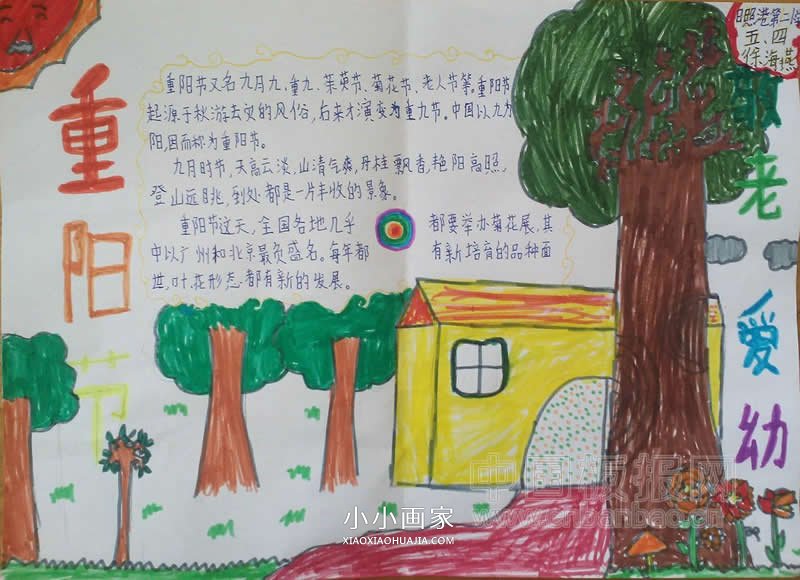 日照港第二小
五、四
徐海燕
重阳节
敬老爱幼
重阳节又名九月九、重九、茱萸节、菊花节、老人节等。重阳节
起源于秋游去灾的风俗，后来才演变为重九节。中国以九为
阳，因而称为重阳节。
九月时节，天高云淡，山清气爽，丹桂飘香，艳阳高照，
登山远眺，到处都是一片丰收的景象。
重阳节这天，全国各地几乎都要举办菊花展，其
中以广州和北京最负盛名。每年都有新培育的品种面
世，叶、花形态都有新的发展。
中国版报网
www.cnbanbao.cn
小小画家
XIAOXIAOHUAJIA.COM